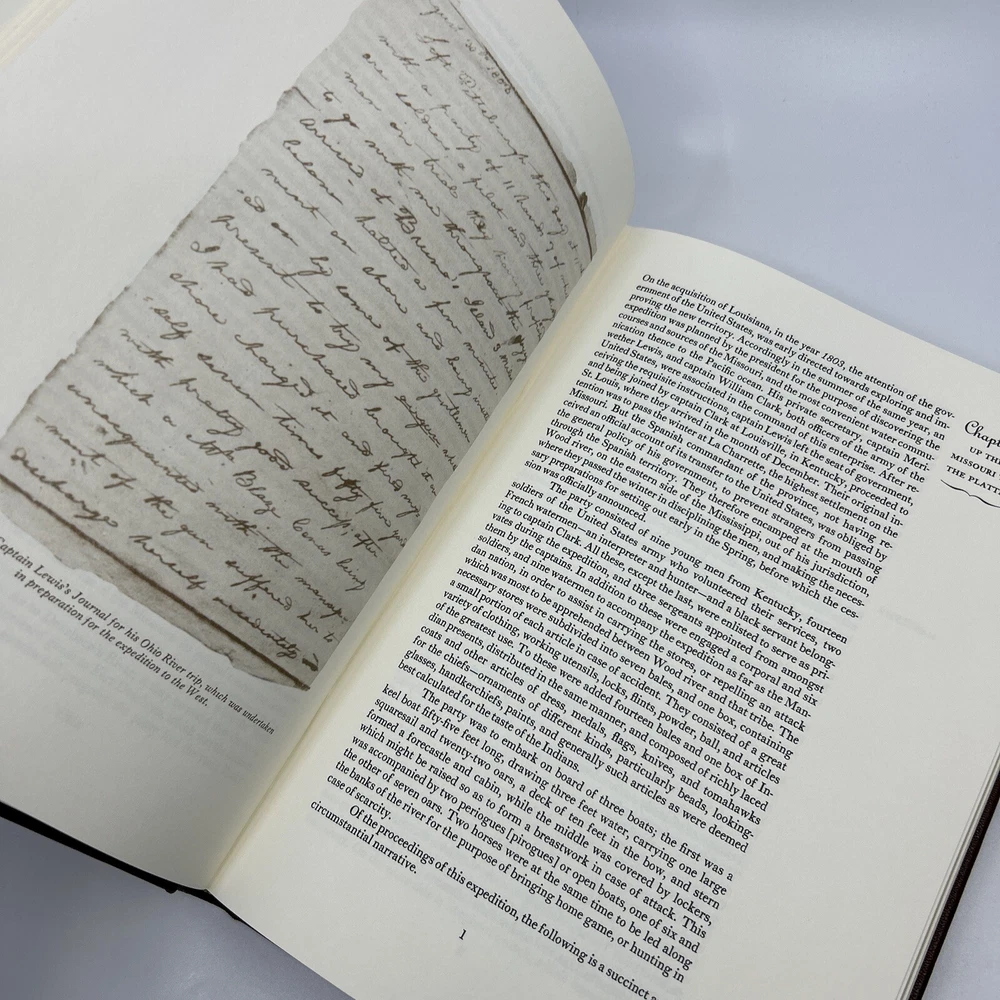 11 hands 7 of
to go with me throughout the
arrived at Bruno's Island 3 m
below halted a few minutes
went on shore and being
on by some of the gentlemen
present to try my air gun
I had purchased brought it on
self seven times fifty five
with pretty good success; after
which a Mr Blaze Cenas being
unacquainted with the manage-
ment of the gun suffered her to
discharge herself accidentaly
Captain Lewis's Journal for his Ohio River trip, which was undertaken
in preparation for the expedition to the West.
On the acquisition of Louisiana, in the year 1803, the attention of the gov-
ernment of the United States, was early directed towards exploring and im-
proving the new territory. Accordingly in the summer of the same year, an
expedition was planned by the president for the purpose of discovering the
courses and sources of the Missouri, and the most convenient water commu-
nication thence to the Pacific ocean. His private secretary, captain Meri-
wether Lewis, and captain William Clark, both officers of the army of the
United States, were associated in the command of this enterprise. After re-
ceiving the requisite instructions, captain Lewis left the seat of government,
and being joined by captain Clark at Louisville, in Kentucky, proceeded to
St. Louis, where they arrived in the month of December. Their original in-
tention was to pass the winter at La Charrette, the highest settlement on the
Missouri. But the Spanish commandant of the province, not having re-
ceived an official account of its transfer to the United States, was obliged by
the general policy of his government, to prevent strangers from passing
through the Spanish territory. They therefore encamped at the mouth of
Wood river, on the eastern side of the Mississippi, out of his jurisdiction,
where they passed the winter in disciplining the men, and making the neces-
sary preparations for setting out early in the Spring, before which the ces-
sion was officially announced.
The party consisted of nine young men from Kentucky, fourteen
soldiers of the United States army who volunteered their services, two
French watermen—an interpreter and hunter—and a black servant belong-
ing to captain Clark. All these, except the last, were enlisted to serve as pri-
vates during the expedition, and three sergeants appointed from amongst
them by the captains. In addition to these were engaged a corporal and six
soldiers, and nine watermen to accompany the expedition as far as the Man-
dan nation, in order to assist in carrying the stores, or repelling an attack
which was most to be apprehended between Wood river and that tribe. The
necessary stores were subdivided into seven bales, and one box, containing
a small portion of each article in case of accident. They consisted of a great
variety of clothing, working utensils, locks, flints, powder, ball, and articles
of the greatest use. To these were added fourteen bales and one box of In-
dian presents, distributed in the same manner, and composed of richly laced
coats and other articles of dress, medals, flags, knives, and tomahawks
for the chiefs—ornaments of different kinds, particularly beads, looking-
glasses, handkerchiefs, paints, and generally such articles as were deemed
best calculated for the taste of the Indians.
The party was to embark on board of three boats; the first was a
keel boat fifty-five feet long, drawing three feet water, carrying one large
squaresail and twenty-two oars, a deck of ten feet in the bow, and stern
formed a forecastle and cabin, while the middle was covered by lockers,
which might be raised so as to form a breastwork in case of attack. This
was accompanied by two periogues [pirogues] or open boats, one of six and
the other of seven oars. Two horses were at the same time to be led along
the banks of the river for the purpose of bringing home game, or hunting in
case of scarcity.
Of the proceedings of this expedition, the following is a succinct a
circumstantial narrative.
1
Chap
UP TH
MISSOURI
THE PLATT